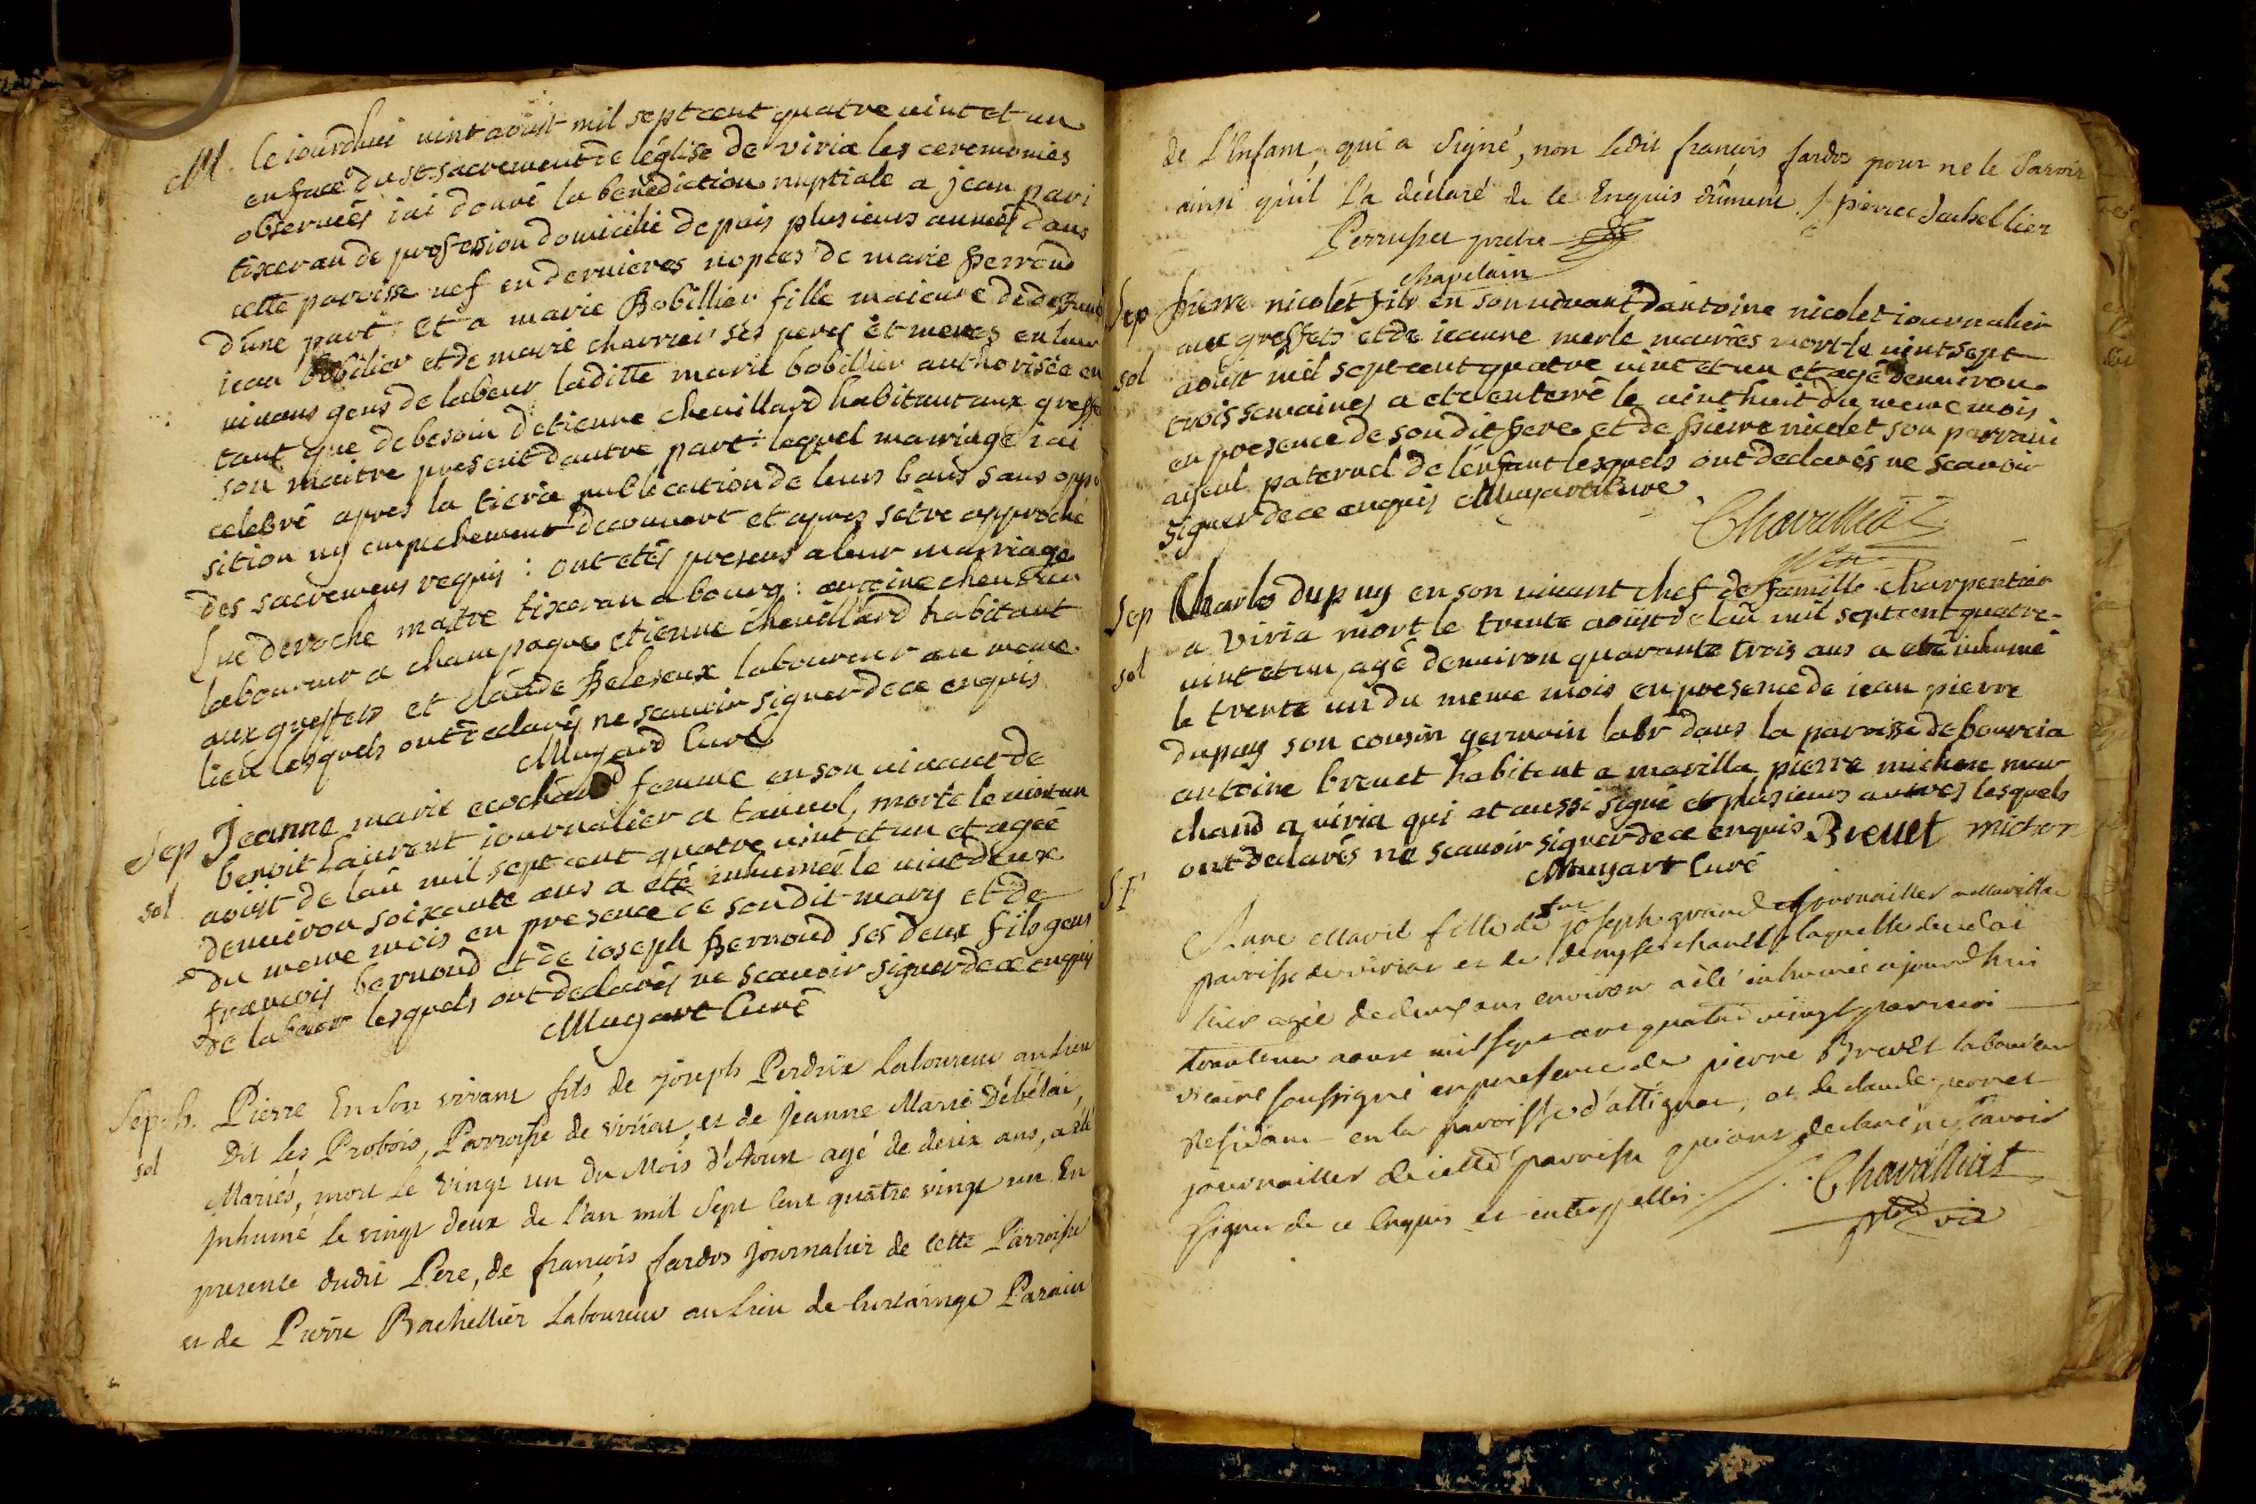 M. le jourdhui vint aoüst mil sept cent quatre vint et un
en face du st sacrement de léglise de viria les ceremonies
observées iai donné la benediction nuptiale a jean pari
tixeran de profession domicilié depuis plusieurs années dans
cette paroisse vef en dernieres nopces de marie perroud
d'une part et a marie Bobillier fille majeure de defunt
jean bobilier et de marie charrier ses peres et meres en leur
vivans gens de labeur laditte marie bobillier authorisée en
tant que de besoin detienne chevillard habitant aux greffe
son maitre present dautre part: lequel mariage iai
celebré apres la tierce publication de leurs bans sans oppo
sition ny empechement decouvert et apres sétre approché
des sacremens requis: ont etés presens a leur mariage
Luc deroche maitre tixeran a bourg: antoine
laboureur a champagne etienne chevillard habitant
aux greffets et claude laboureur au meme
lieu lesquels ont declarés ne scauoir signer de ce enquis
Mugard Curé
Sep Jeanne marie ecochard femme en son vivant de
benoit Laurent journalier a tanvol, morte le vint un
sol aoüst de lan mil sept cent quatre vint et un et agée
denviron soixante ans a eté inhumée le vint deux
du meme mois en presence de son dit mary et de
francois bernoud et de ioseph Bernoud ses deux fils gens
de labeur lesquels ont declarés ne scauoir signer de ce enquis
Mugard Curé
Sep. h. Pierre En son vivant fils de joseph Perdrix Laboureur au Lieu
sol Dit les Probois, Parroisse de Viriat, et de jeanne Marie Débélai,
Mariés, mort le vingt un du Mois d'Aoust agé de deux ans, a été
Inhumé le vingt deux de l'an mil Sept Cent quatre vingt un En
presence dudit Pere, de françois fardos journalier de Cette Parroisse
et de Pierre Bachellier Laboureur au Lieu de Curtaringe Parain
de L'Enfant, qui a Signé, non Ledit françois fardos pour ne le Savoir
ainsi qu'il L'a déclaré de ce Enquis dûment ./. pierre bachellier
Perruset pretre
chapelain
Sep Pierre nicolet fils en son vivant dantoine nicolet iournalier
aux greffets et de ieanne merle mariés mort le vint sept
sol aoüst mil sept cent quatre vint et un et agé denviron
trois semaines a eté enterré le vint huit du meme mois
en presence de sondit pere et de pierre nicolet son parrain
ayeul paternel de lenfant lesquels ont declarés ne scauoir
signer de ce enquis Mugard Cure
Chavalliat
Sep Charles dupuy en son vivant chef de famille charpentier
a viria mort le trente aoüst de lan mil sept cent quatre-
sol vint et un, agé denviron quarante trois ans a eté inhumé
le trente un du meme mois en presence de iean pierre
dupuy son cousin germain labr dans la paroisse de bourcia
antoine brevet habitant a marilla pierre michon mar
chand a viria qui at aussi signé et plusieurs autres lesquels
ont declarés ne scauoir signer de ce enquis Brevet michon
Mugard Curé
S.F
Anne Marie fille de feu joseph grand journaillier a Marilla
paroisse de viriat et de laquelle decedat
hier agée de deux ans environ a été inhumée ajourdhuy
trante un aoust mil sept cent quatre vingt par moi
vicaire soussigné en presence de pierre Brevet laboureur
residant en la paroisse d'attignat, et de claude pernet
journaillier de cette parroisse qui ont déclaré ne savoir
signer de ce Enquis et interpellés. Chavalliat
ptre vic